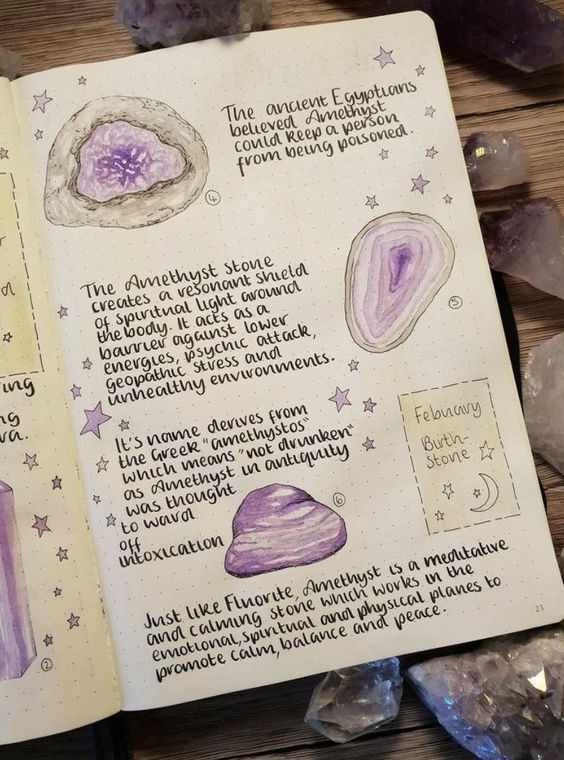 The ancient Egyptians
believed Amethyst
could keep a person
from being poisoned.
4
The Amethyst stone
creates a resonant shield
of spiritual light around
the body. It acts as a
barrier against lower
energies, psychic attack,
geopathic stress and
unhealthy environments.
5
It's name derives from
the Greek "amethystos"
which means "not drunken"
as Amethyst in antiquity
was thought
to ward
off
intoxication
6
February
Birth-
stone
Just like Fluorite, Amethyst is a meditative
and calming stone which works in the
emotional, spiritual and physical planes to
promote calm, balance and peace.
23
2